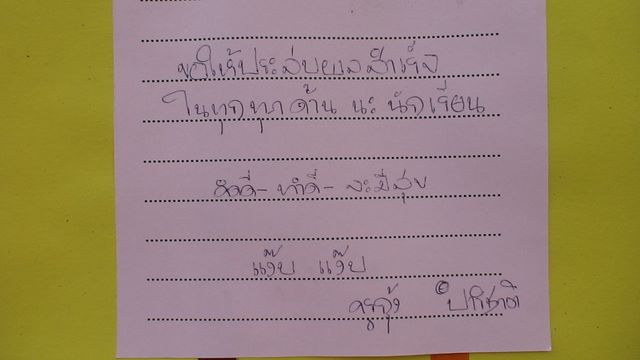 ขอให้ประสบผลสำเร็จ
ในทุกทุกด้าน นะ นักเรียน
คิดดี - ทำดี - จะมีสุข
แง๊บ แง๊บ
ครูกุ้ง ปาริชาติ